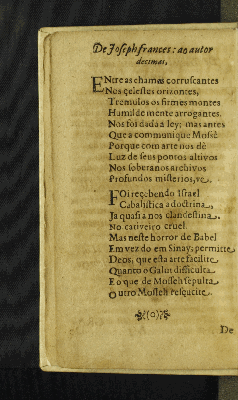 De Joseph frances: ao autor
decimas,
Entre as chamas corruscantes
Nos çelestes orizontes,
Tremulos os firmes montes
Humildemente arrogantes.
Nos foi dada a ley; mas antes
Que a communique Mosse
Porque com arte nos dè
Luz de seus pontos altivos
Nos soberanos archivos
Profundos misterios, ve.
Foi reçebendo Israel
Cabalistica a doctrina,
Ja quasi a nos clandestina,
No cativeiro cruel.
Mas neste horror de Babel
Em vez do em Sinay; permitte
Deos; que esta arte facilite
Quanto o Galut difficulta
E o que de Mosseh sepulta
Outro Mosseh resuçite
De